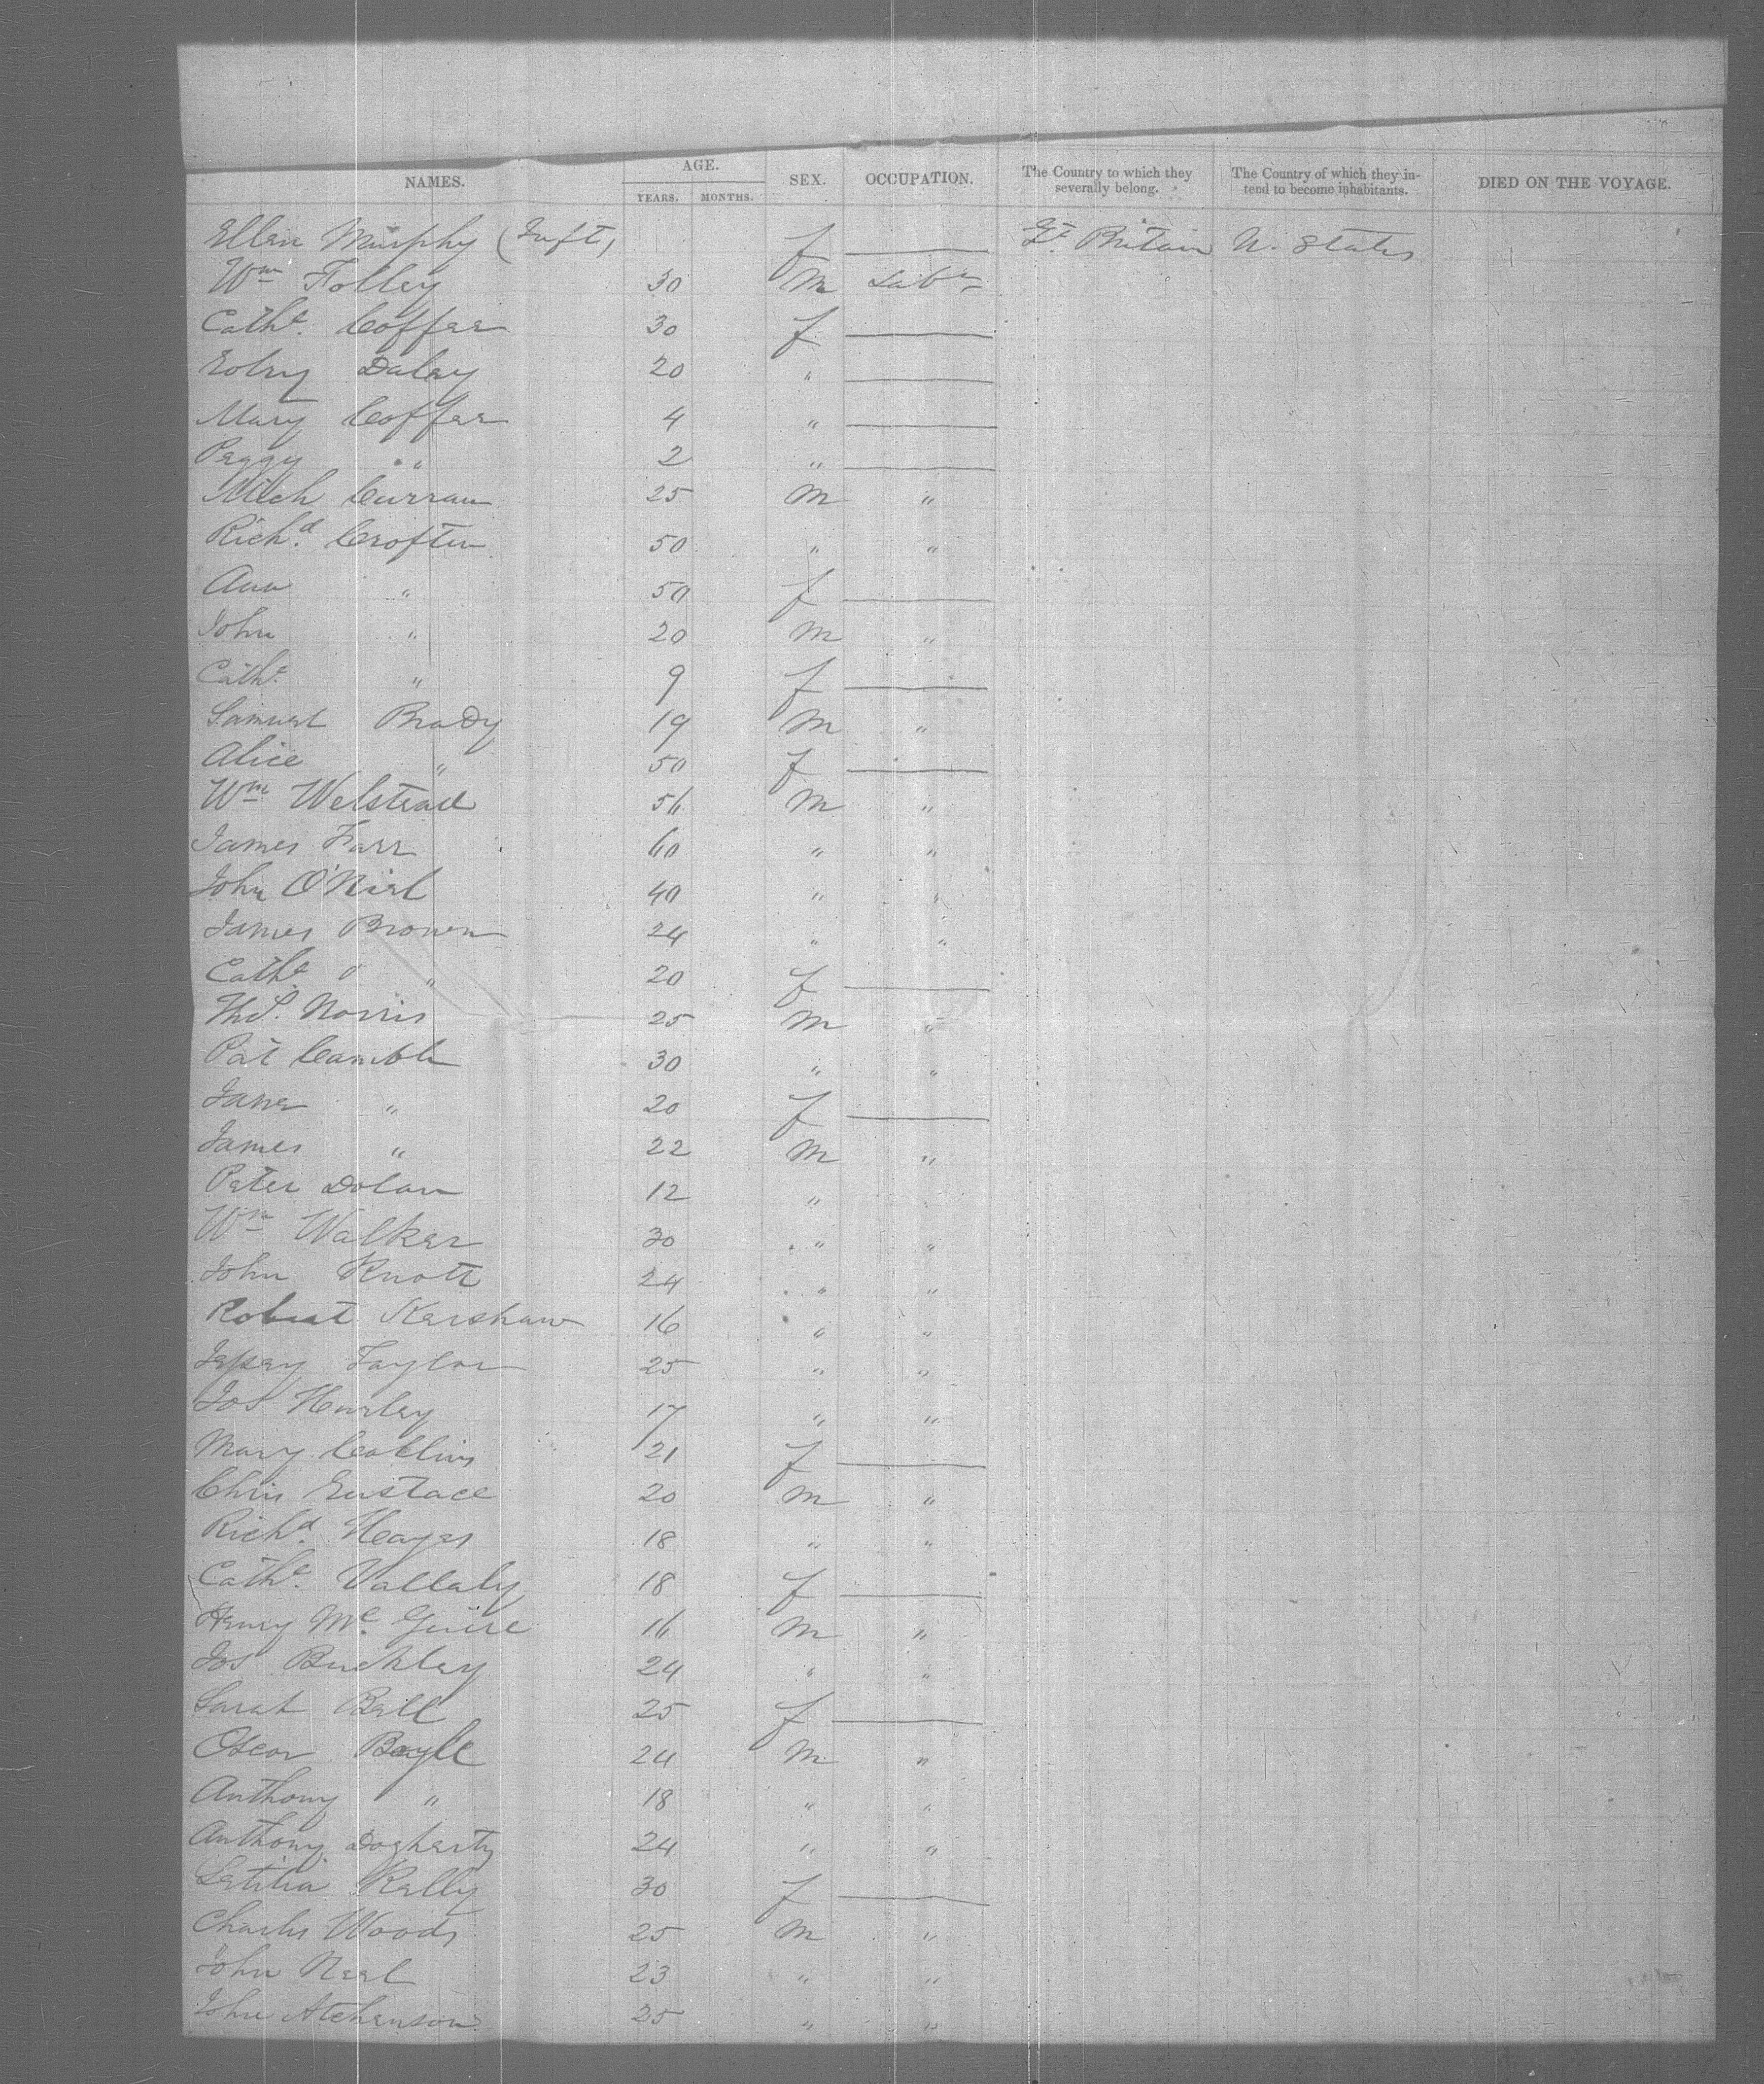 NAMES. AGE. SEX. OCCUPATION. The Country to which they severally belong. The Country of which they intend to become inhabitants. DIED ON THE VOYAGE.
YEARS. MONTHS.
Ellen Murphy (Inft) f — Gt. Britain U. States
Wm Folley 30 m Labr
Cathe. Coffee 30 f —
Daley 20 " —
Mary Coffee 4 " —
Peggy " 2 " —
Mich Curran 25 m "
Richd. Crofton 50 " "
Ann " 50 f —
John " 20 m "
Cathe. " 9 f —
Samuel Brady 19 m "
Alice " 50 f —
Wm Welstead 56 m "
James Farr 60 " "
John O'Niel 40 " "
James Brown 24 " "
Cathe. " 20 f —
Thos. Norris 25 m "
Pat Gamble 30 " "
Jane " 20 f —
James " 22 m "
Peter Dolan 12 "
Wm Walker 30 " "
John Knott 24 " "
Robert Kershaw 16 " "
Taylor 25 " "
Jos Hurley 17 " "
Mary Collins 21 f —
Chris Eustace 20 m "
Richd. Hayes 18 " "
Cathe. Vallaly 18 f —
Henry Mc. Guire 16 m "
Jos Buckley 24 " "
Sarah Bell 25 f —
Oscar Boyle 24 m "
Anthony " 18 " "
Anthony Dogherty 24 " "
Letitia Kelly 30 f —
Charles Woods 25 m "
John Neal 23 " "
John Atchenson 25 " "